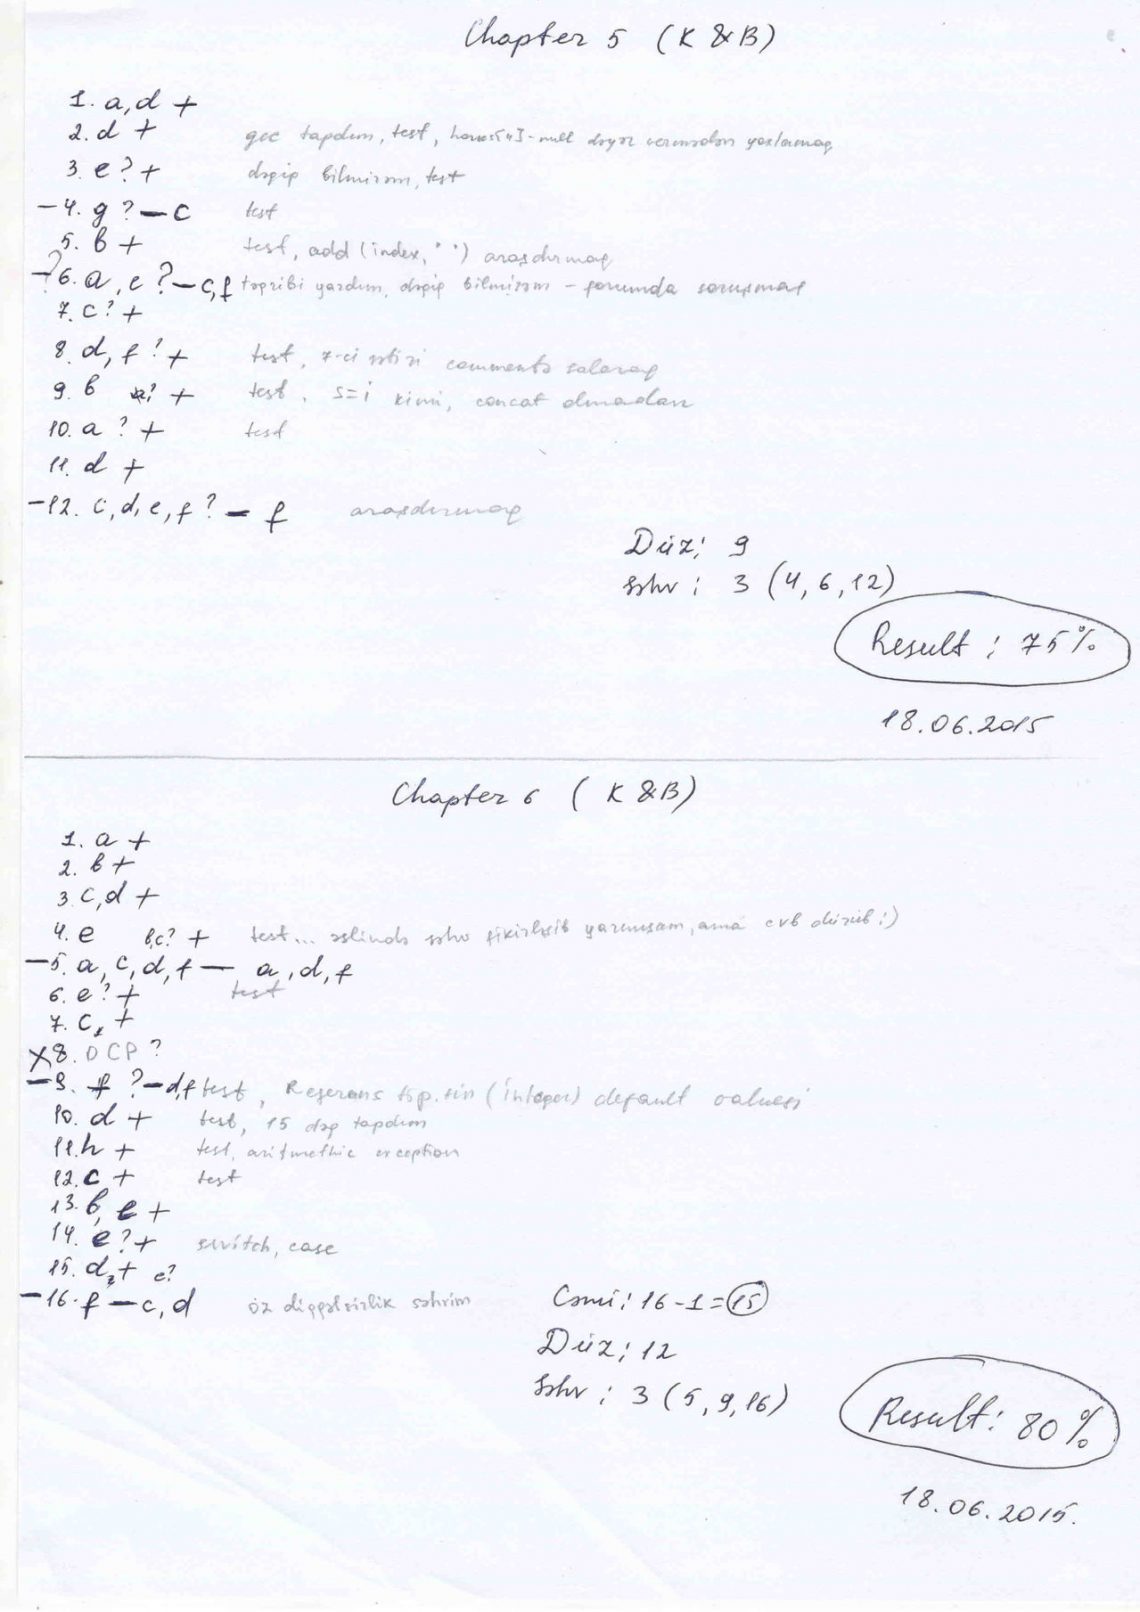 Chapter 5 (K & B)
1. a, d +
2. d + gec tapdım, test,
3. e? + dəqiq bilmirəm, test
-4. g? - c test
5. b + test, add (index, ' ') araşdırmaq
-?6. a, e? - c, f təqribi yazdım, dəqiq bilmirəm - forumda soruşmaq
7. c? +
8. d, f? + test, 7-ci sətri commentə salaraq
9. b ? + test, s=i kimi, concat olmadan
10. a? + test
11. d +
-12. c, d, e, f? - f araşdırmaq
Düz: 9
səhv: 3 (4, 6, 12)
Result: 75%
18.06.2015
Chapter 6 (K & B)
1. a +
2. b +
3. c, d +
4. e b, c? + test... əslində səhv fikirləşib yazmışam, ama cvb düzüb :)
-5. a, c, d, f - a, d, f
6. e? + test
7. c, +
x8. OCP?
-9. f? - d, f test, Referans tip.-in (Integer) default valuesi
10. d + test, 15 dəq tapdım
11. h + test, aritmethic exception
12. c + test
13. b, e +
14. e? + switch, case
15. d, + c?
-16. f - c, d öz diqqətsizlik səhvim
Cəmi: 16-1=15
Düz: 12
Səhv: 3 (5, 9, 16)
Result: 80%
18.06.2015.